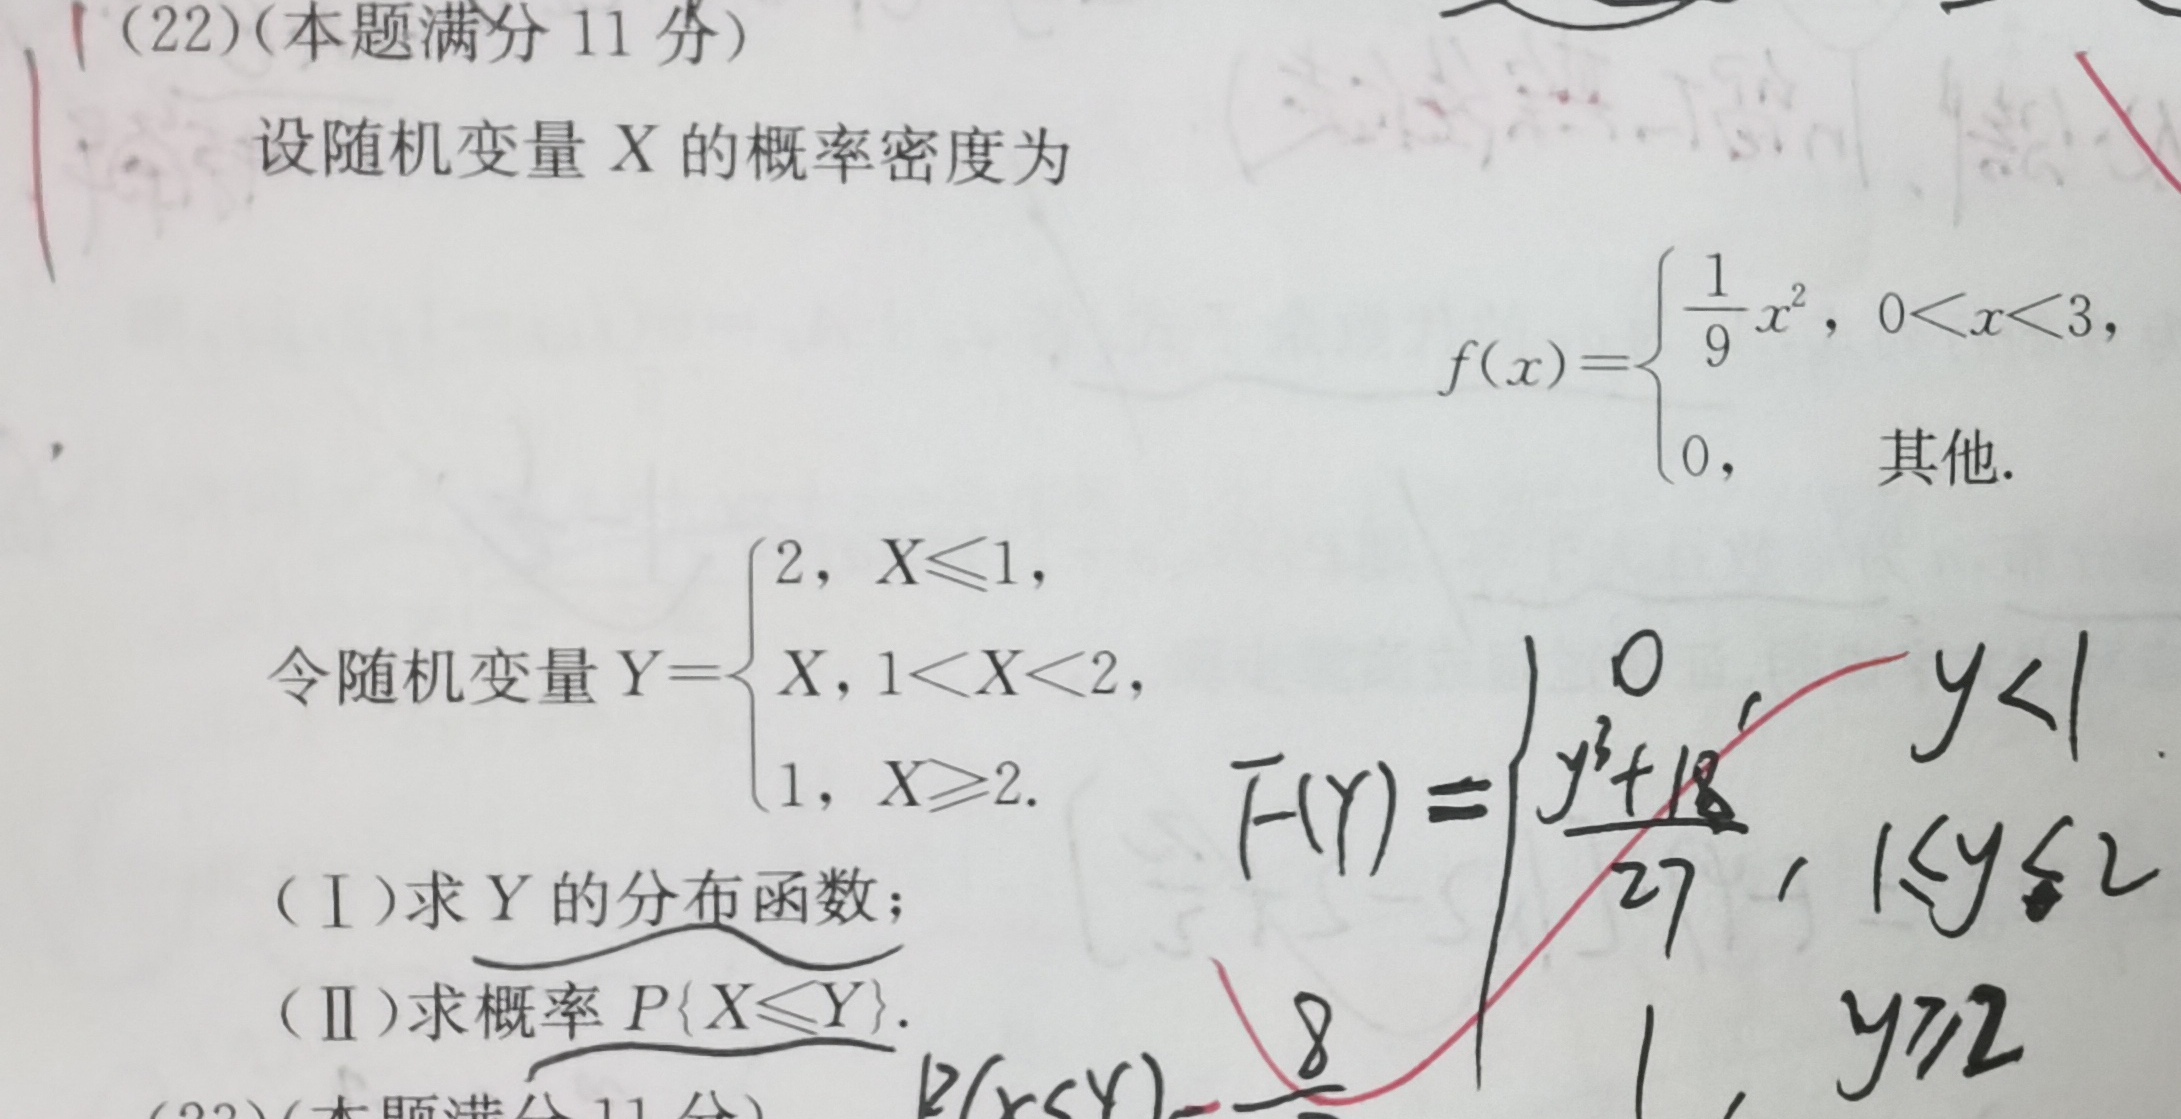 (22)(本题满分 11 分)
设随机变量 X 的概率密度为
f(x)={ 1/9 x², 0<x<3,
0, 其他.
令随机变量 Y={ 2, X⩽1,
X, 1<X<2,
1, X⩾2.
F(Y) = { 0, y<1
(y³+18)/27, 1≤y≤2
1, y≥2
(Ⅰ)求 Y 的分布函数;
(Ⅱ)求概率 P{X⩽Y}.
P(X≤Y)= 8
(23)(本题满分 11 分)